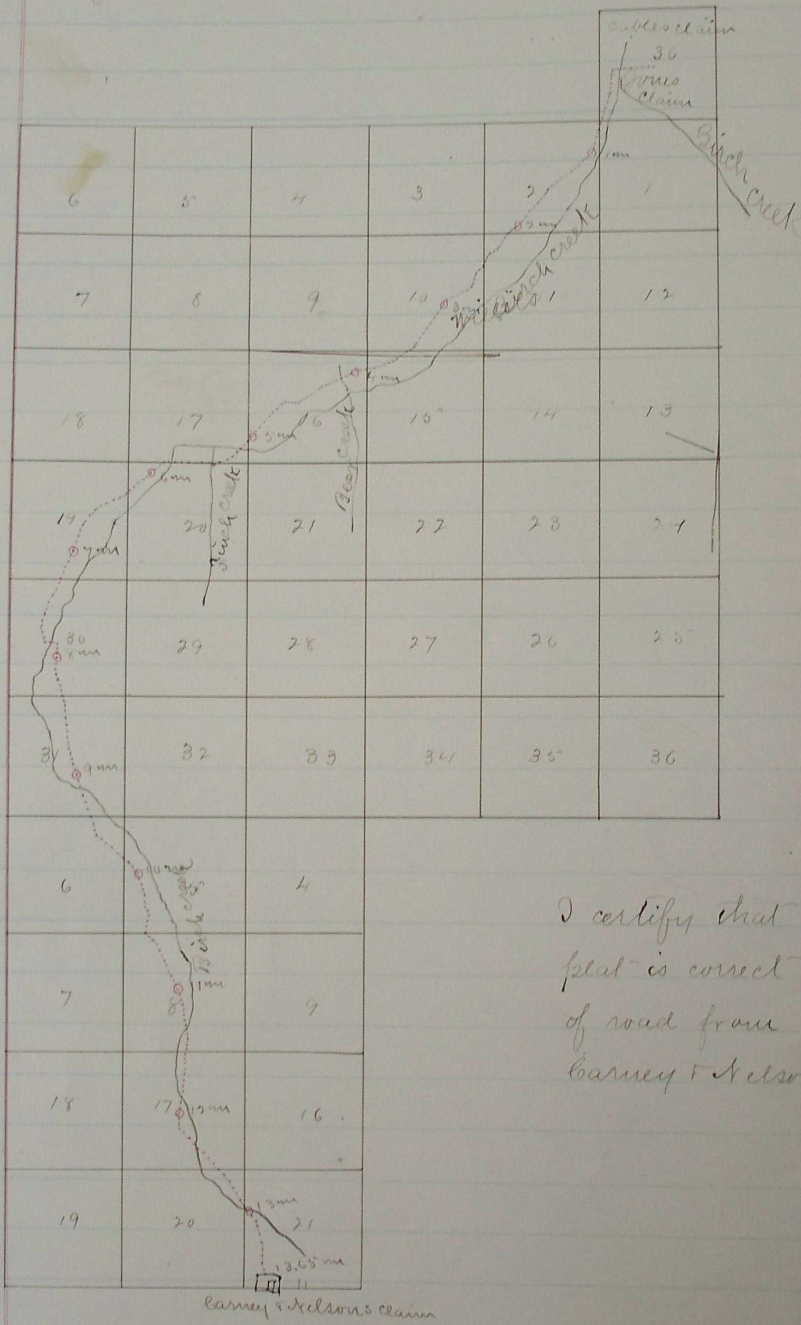 Cables claim
36
Jones
Claim
Birch Creek
1 m
6 5 4 3 2 1
2 m
Birch Creek
7 8 9 10 1 12
3 m
4 m
18 17 16 15 14 13
5 m
Bear Creek
6 m
19 20 21 22 23 24
Birch Creek
7 m
30 29 28 27 26 25
8 m
31 32 33 34 35 36
9 m
6 5 4
Birch Creek
7 8 9
11 m
18 17 16
12 m
13 m
19 20 21
13.65 m
Carney & Nelsons claim
I certify that
plat is correct
of road from
Carney & Nelso